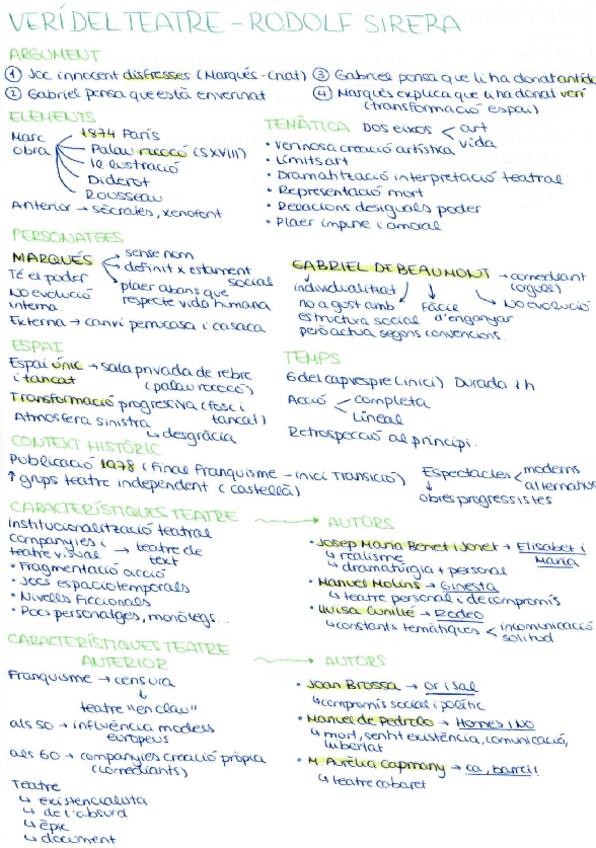 VERÍ DEL TEATRE - RODOLF SIRERA
ARGUMENT
① Joc innocent disfresses (Marqués - criat)
② Gabriel pensa que està enverinat
③ Gabriel pensa que li ha donat antídot
④ Marqués explica que li ha donat verí
(transformació espai)
ELEMENTS
Marc obra
1974 París
Palau rococó (S XVIII)
Il·lustració
Diderot
Rousseau
Anterior → sòcrates, xenofont
TEMÀTICA DOS eixos < art
vida
• Verinosa creació artística
• Límits art
• Dramatització interpretació teatral
• Representació mort
• Relacions desiguals poder
• Plaer impune i amoral
PERSONATGES
MARQUÉS → sense nom
→ definit x estament social
→ plaer abans que
respecte vida humana
Té el poder
No evolució
interna
Externa → canvi perruca i casaca
GABRIEL DE BEAUMONT → comediant
(orgull)
individualitat
no a gust amb
estructura social
però actua segons convencions.
Fàcil
d'enganyar
No evolució
ESPAI
Espai únic → sala privada de rebre
i tancat (palau rococó)
Transformació progressiva (fosc i
tancat)
Atmosfera sinistra
↳ desgràcia
TEMPS
6 del capvespre (inici) Durada 1h
Acció < completa
Lineal
Retrospecció al principi.
CONTEXT HISTÒRIC
Publicació 1978 (Final Franquisme - inici Transició)
↑ grups teatre independent (castellà)
Espectacles < moderns
alternatius
↓
obres progressistes
CARACTERÍSTIQUES TEATRE
Institucionalització teatral
companyies i
teatre visual → teatre de
text
• Fragmentació acció
• Jocs espaciotemporals
• Nivells ficcionals
• Pocs personatges, monòlegs...
→ AUTORS
• Josep Maria Benet i Jonet → Elisabet i
Maria
↳ realisme
↳ dramatúrgia + personal
• Manuel Molins → Ginesta
↳ teatre personal i de compromís
• Lluïsa Cunillé → Rodeo
↳ constants temàtiques < incomunicació
solitud
CARACTERÍSTIQUES TEATRE
ANTERIOR
Franquisme → censura
↓
teatre "en clau"
als 50 → influència models
europeus
als 60 → companyies creació pròpia
(comediants)
Teatre
↳ existencialista
↳ de l'absurd
↳ èpic
↳ document
→ AUTORS
• Joan Brossa → or i sal
↳ compromís social i polític
• Manuel de Pedrolo → Homes i No
↳ mort, sentit existència, comunicació,
llibertat
• M Aurèlia Capmany → ca, barret!
↳ teatre cabaret